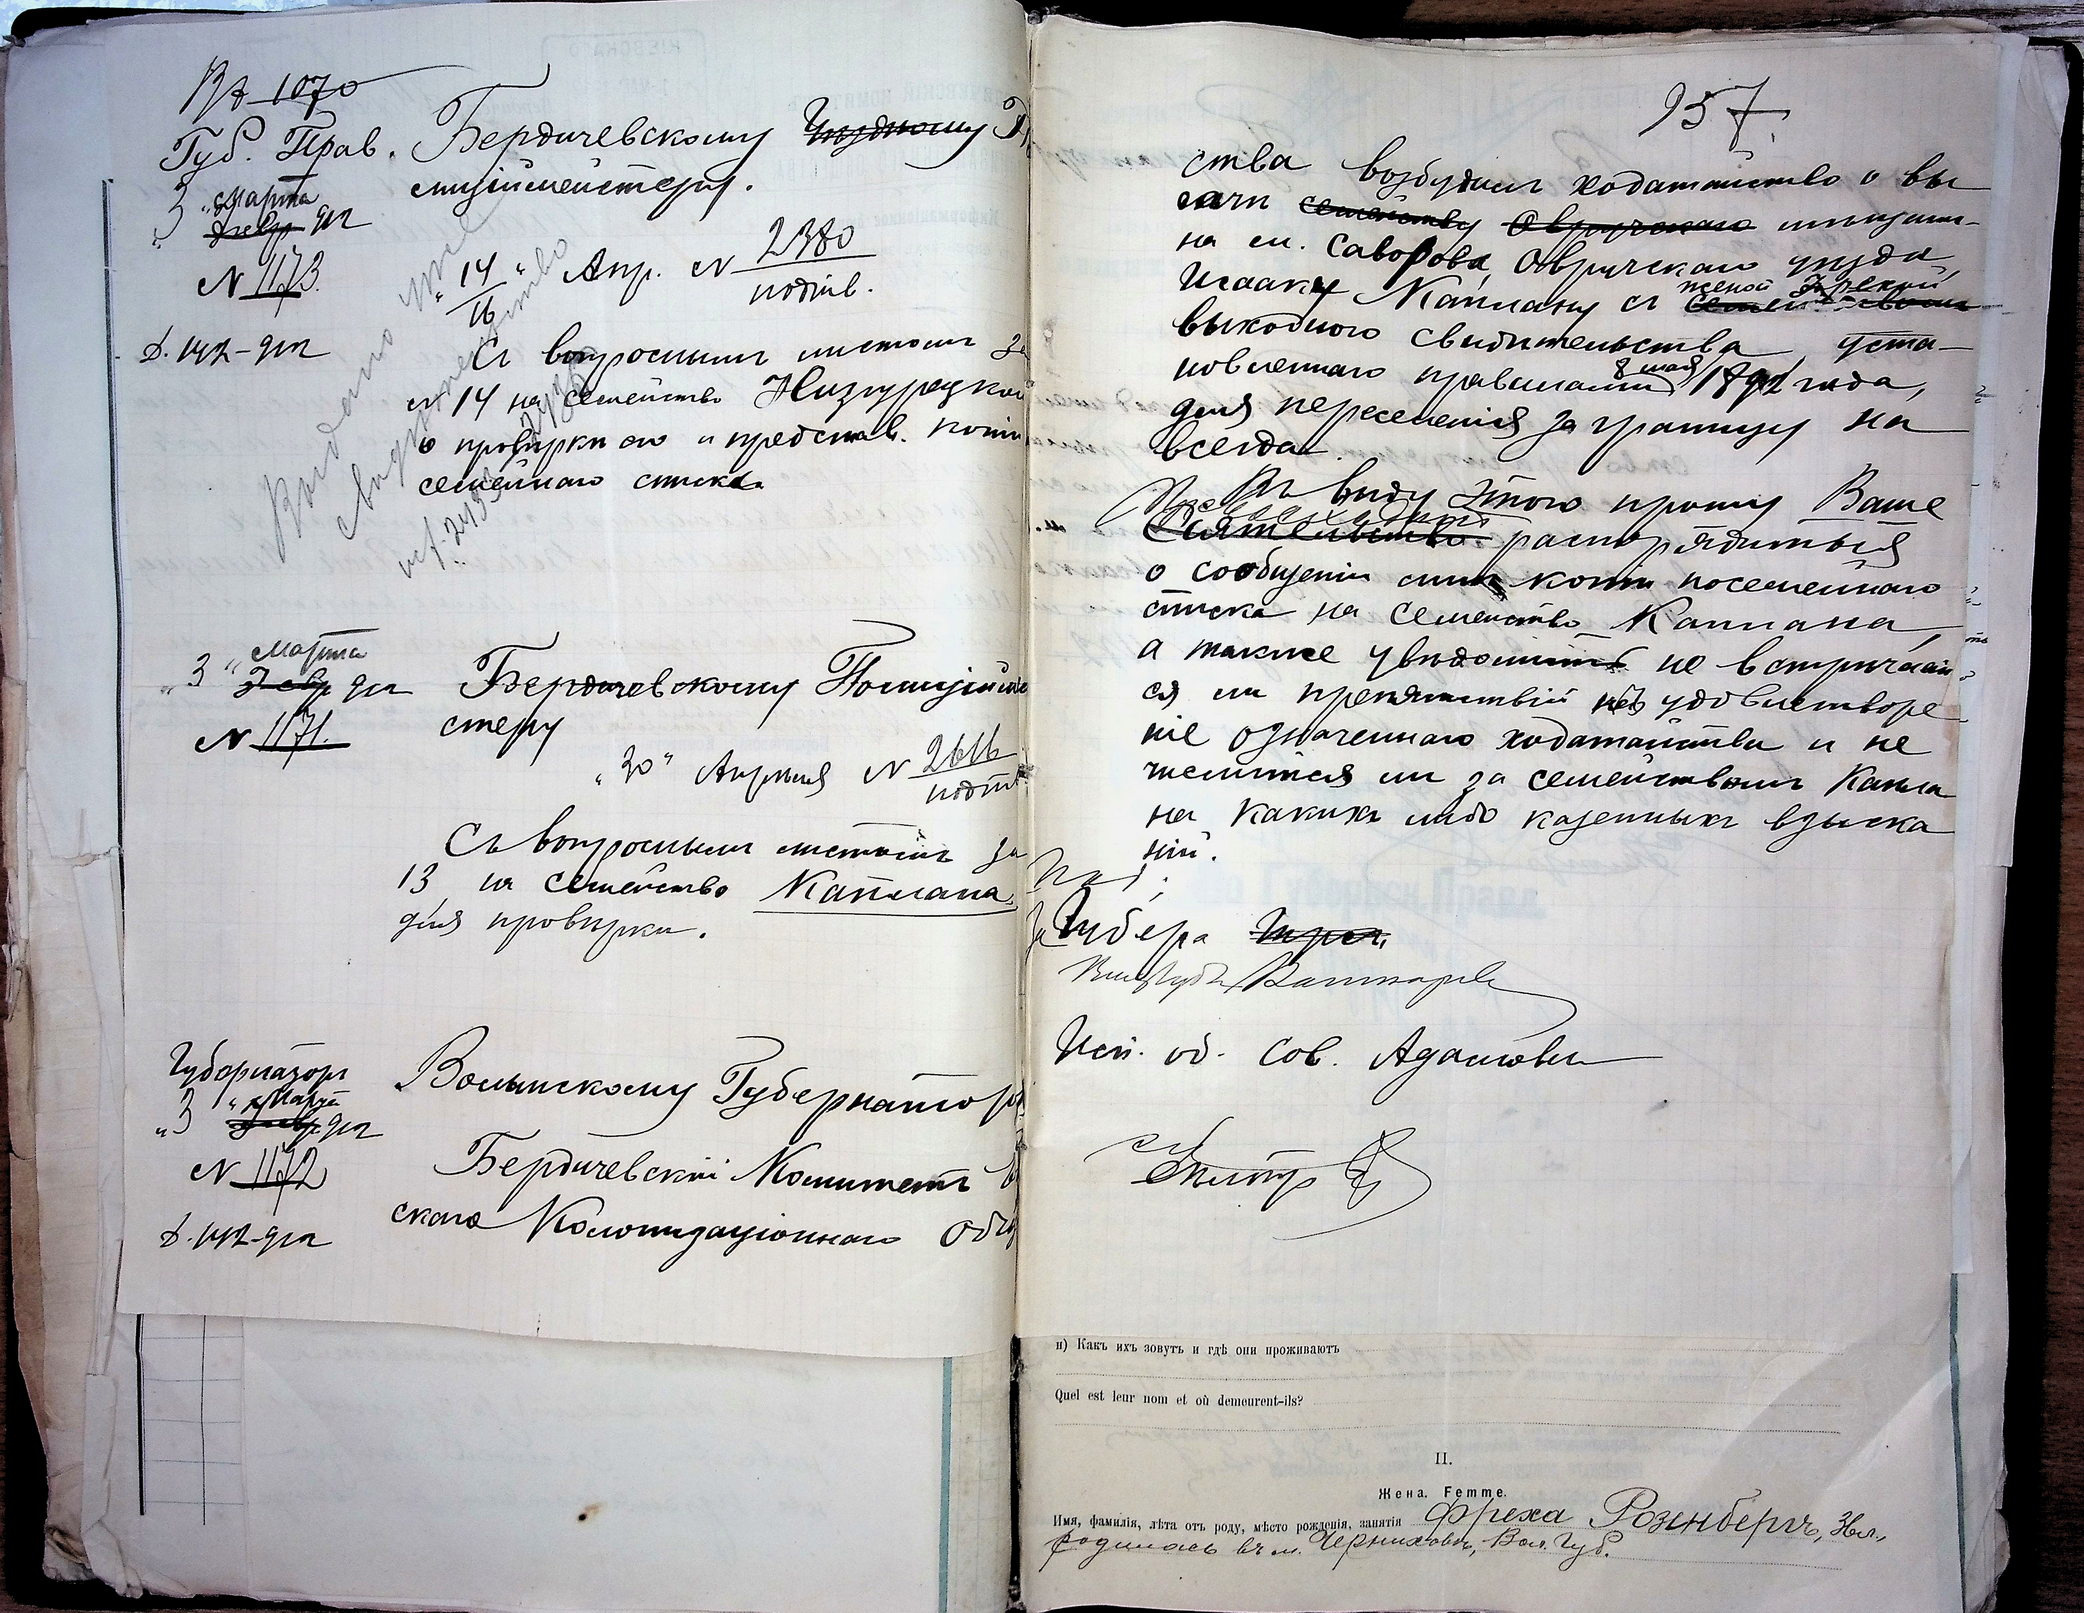 1070
Губ. Прав.
"3" Марта
N 1173.
Бердичевскому Уѣздному
лиціймейстеру.
"14/16" Апр. N 2380
Съ вопроснымъ листомъ за
N 14 на семейство Низгурецкой
о провѣркѣ его и представ. копіи
семейнаго списка
Выдано
свидѣтельство
"3" Марта
Февр.
N 1171.
Бердичевскому Полиційме
стеру
"30" Апрѣля N 2616
Съ вопроснымъ листомъ за
13 на семейство Каплана
для провѣрки.
Губернаторъ
"3" Марта
N 1172
Волынскому Губернатору
Бердичевскій Комитетъ
скаго Колонизаціоннаго Общ
957
ства возбудилъ ходатайство о вы
дачи семейству Овручскаго мѣщани-
на м. Словечна, Овручскаго уѣзда,
Исааку Каплану съ женой Фрехой
выходного свидѣтельства, уста-
новленнаго правилами 8 мая 1892 года,
для переселенія за границу на
всегда.
Въ виду этого прошу Ваше
Превосходит.
Сіятельство распорядиться
о сообщеніи мнѣ копіи посемейнаго
списка на семейство Каплана,
а также увѣдомить не встрѣчает
ся ли препятствій къ удовлетворе
нію означеннаго ходатайства и не
числится ли за семействомъ Капла
на какихъ либо казенныхъ взыска
ній.
Губ-ра
Исп. об. Сов.
н) Какъ ихъ зовутъ и гдѣ они проживаютъ
Quel est leur nom et où demeurent-ils?
II.
Жена. Femme.
Имя, фамилія, лѣта отъ роду, мѣсто рожденія, занятія Фреха Розенбергъ, 36 л.,
родилась въ м. Черняховъ, Вол. Губ.